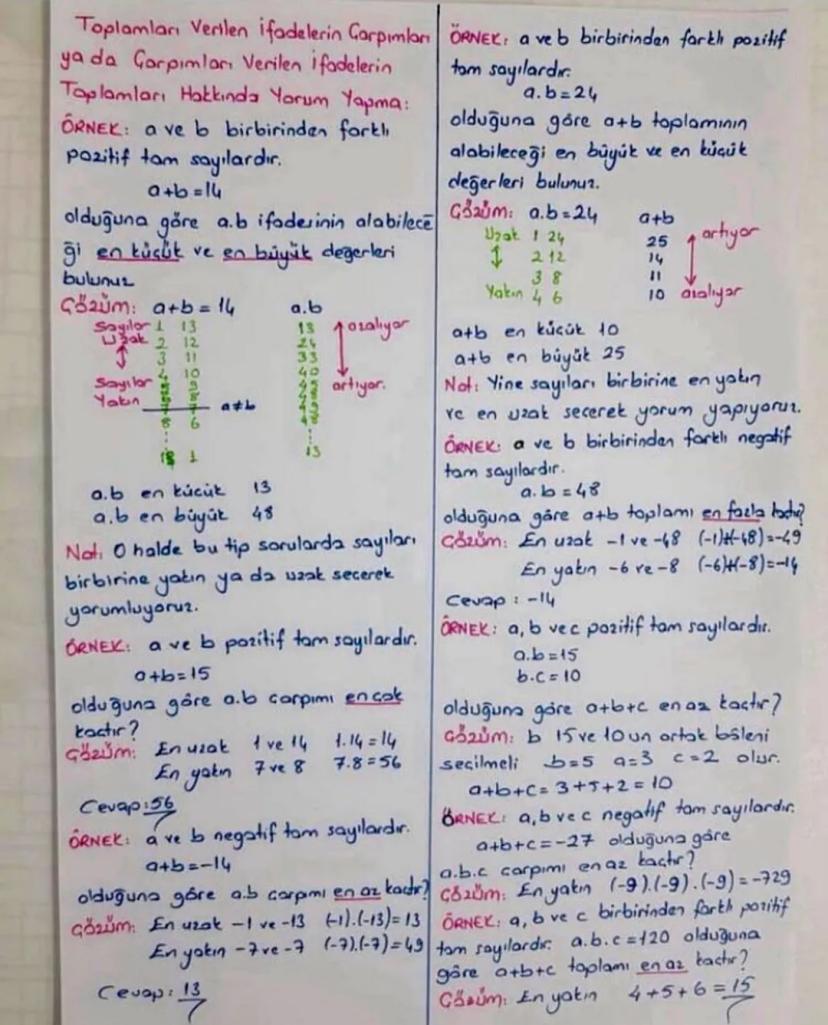 Toplamları Verilen İfadelerin Çarpımları
ya da Çarpımları Verilen İfadelerin
Toplamları Hakkında Yorum Yapma:
ÖRNEK: a ve b birbirinden farklı
pozitif tam sayılardır.
a+b=14
olduğuna göre a.b ifadesinin alabilece
ği en küçük ve en büyük değerleri
bulunuz
Çözüm: a+b=14 a.b
Sayılar 1 13 13 azalıyor
Uzak 2 12 24
3 11 33
4 10 40
Sayılar 5 9 45 artıyor.
Yakın 6 8 48
7 7 a≠b
8 6 48
13 1 13
a.b en küçük 13
a.b en büyük 48
Not: O halde bu tip sorularda sayıları
birbirine yakın ya da uzak seçerek
yorumluyoruz.
ÖRNEK: a ve b pozitif tam sayılardır.
a+b=15
olduğuna göre a.b çarpımı en çok
kaçtır?
Çözüm: En uzak 1 ve 14 1.14=14
En yakın 7 ve 8 7.8=56
Cevap:56
ÖRNEK: a ve b negatif tam sayılardır.
a+b=-14
olduğuna göre a.b çarpımı en az kaçtır?
Çözüm: En uzak -1 ve -13 (-1).(-13)=13
En yakın -7 ve -7 (-7).(-7)=49
Cevap: 13
ÖRNEK: a ve b birbirinden farklı pozitif
tam sayılardır.
a.b=24
olduğuna göre a+b toplamının
alabileceği en büyük ve en küçük
değerleri bulunuz.
Çözüm: a.b=24 a+b
Uzak 1 24 25 artıyor
2 12 14
3 8 11
Yakın 4 6 10 azalıyor
a+b en küçük 10
a+b en büyük 25
Not: Yine sayıları birbirine en yakın
ve en uzak seçerek yorum yapıyoruz.
ÖRNEK: a ve b birbirinden farklı negatif
tam sayılardır.
a.b=48
olduğuna göre a+b toplamı en fazla kaçtır?
Çözüm: En uzak -1 ve -48 (-1)+(-48)=-49
En yakın -6 ve -8 (-6)+(-8)=-14
Cevap: -14
ÖRNEK: a, b ve c pozitif tam sayılardır.
a.b=15
b.c=10
olduğuna göre a+b+c en az kaçtır?
Çözüm: b 15 ve 10 un ortak böleni
seçilmeli b=5 a=3 c=2 olur.
a+b+c=3+5+2=10
ÖRNEK: a, b ve c negatif tam sayılardır.
a+b+c=-27 olduğuna göre
a.b.c çarpımı en az kaçtır?
Çözüm: En yakın (-9).(-9).(-9)=-729
ÖRNEK: a, b ve c birbirinden farklı pozitif
tam sayılardır. a.b.c=120 olduğuna
göre a+b+c toplamı en az kaçtır?
Çözüm: En yakın 4+5+6=15